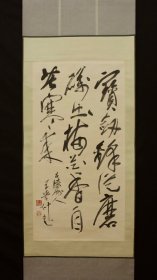 寶劍鋒從磨
礪出梅花香自
苦寒來